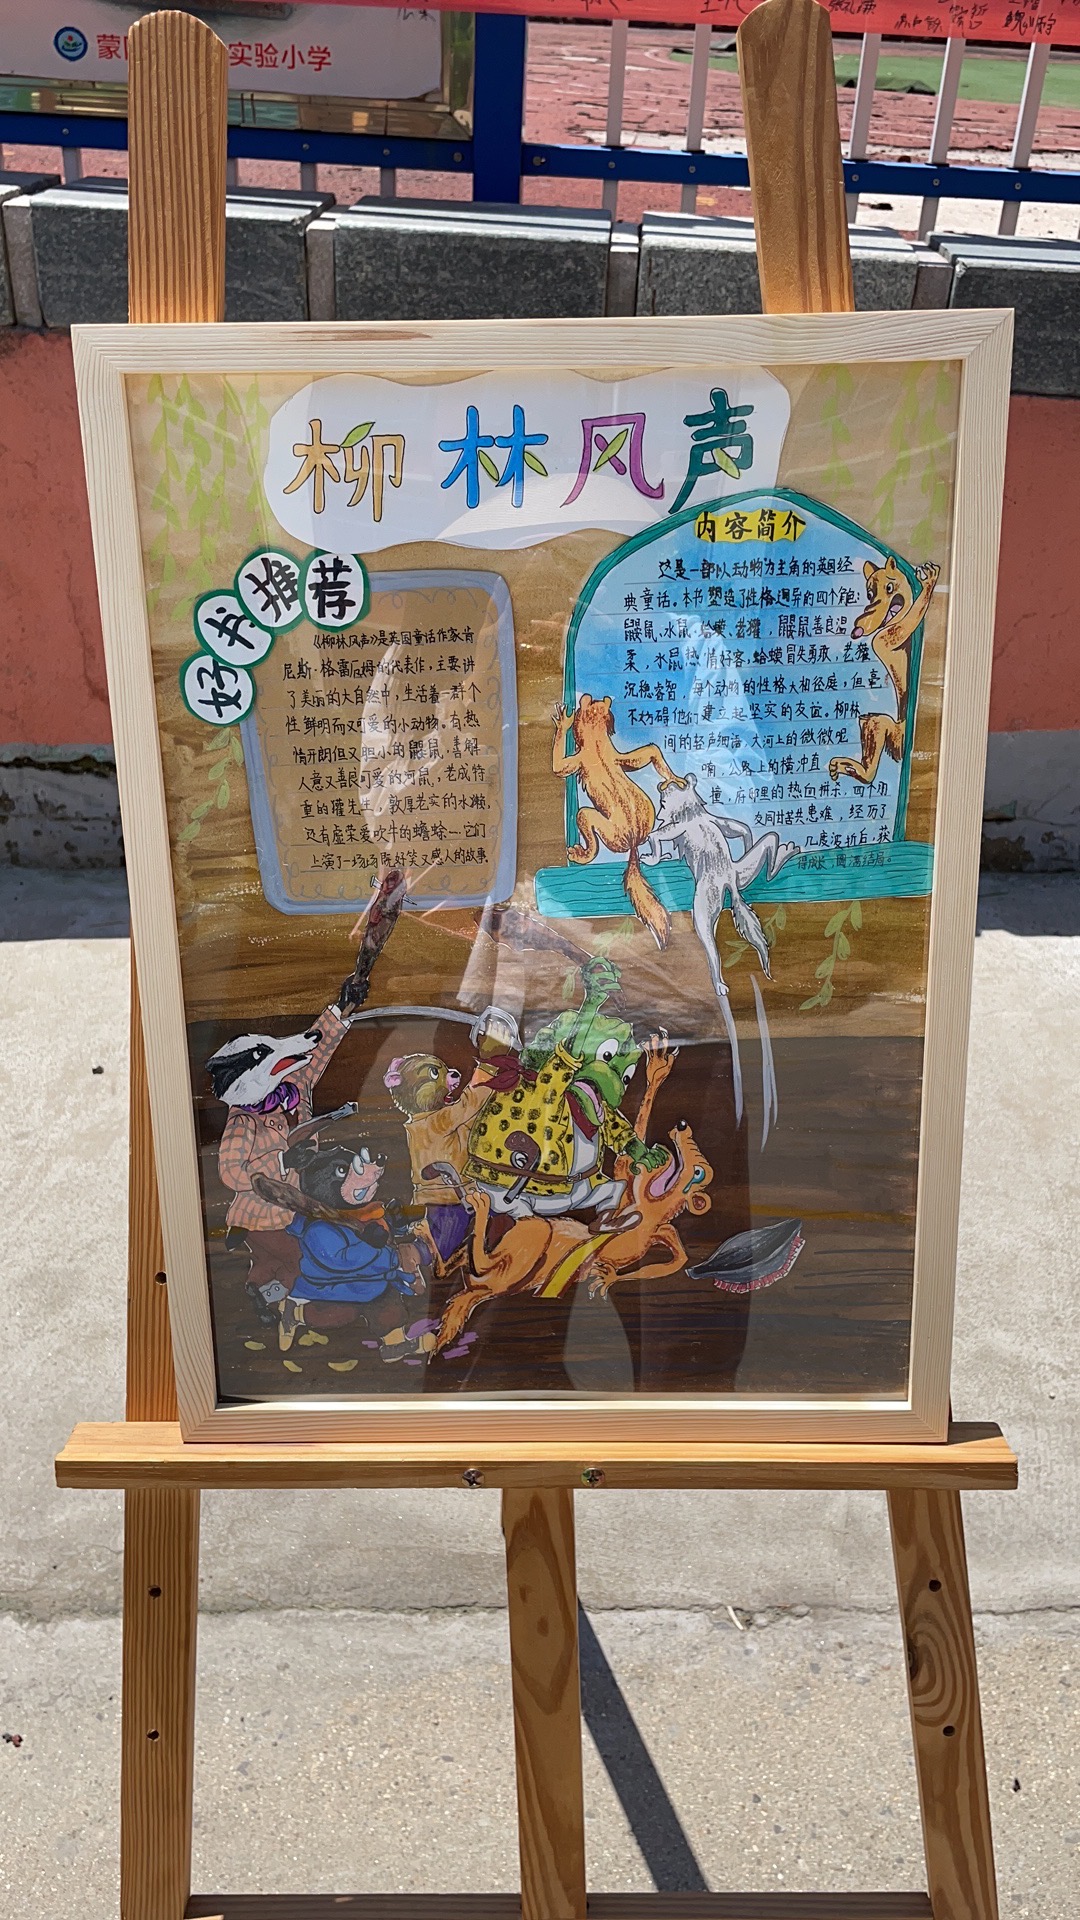 实验小学
柳林风声
好书推荐
《柳林风声》是英国童话作家肯
尼斯·格雷厄姆的代表作,主要讲
了美丽的大自然中,生活着一群个
性鲜明而又可爱的小动物。有热
情开朗但又胆小的鼹鼠,善解
人意又善良可爱的河鼠,老成持
重的獾先生,敦厚老实的水獭,
还有虚荣爱吹牛的蟾蜍……它们
上演了一场场既好笑又感人的故事
内容简介
这是一部以动物为主角的英国经
典童话。本书塑造了性格迥异的四个角色:
鼹鼠、水鼠、蛤蟆、老獾,鼹鼠善良温
柔,水鼠热情好客,蛤蟆冒失勇敢,老獾
沉稳睿智,每个动物的性格大相径庭,但毫
不妨碍他们建立起坚实的友谊。柳林
间的轻声细语,大河上的微微呢
喃,公路上的横冲直
撞,府邸里的热血拼杀,四个朋
友同甘苦共患难,经历了
几度波折后,获
得成长、圆满结局。